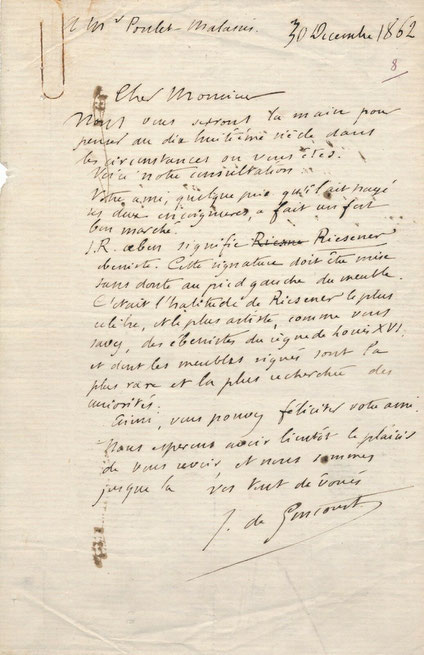 A Mr Poulet-Malassis.
30 Decembre 1862
8
Cher Monsieur
Nous vous serrons la main pour
penser au dix huitième siècle dans
les circonstances ou vous êtes.
Voici notre consultation
Votre ami, quelque prix qu'il ait payé
ses deux encoignures, a fait un fort
bon marché.
J.R. æben signifie Riesner Riesener
ébeniste. Cette signature doit être mise
sans doute au pied gauche du meuble.
C'etait l'habitude de Riesener le plus
célèbre, et le plus artiste, comme vous
savez, des ébenistes du règne de Louis XVI.
et dont les meubles signés sont la
plus rare et la plus recherchée des
curiosités.
Ainsi, vous pouvez féliciter votre ami.
Nous esperons avoir bientôt le plaisir
de vous revoir et nous sommes
jusque là vos tout dévoués
J. de Goncourt